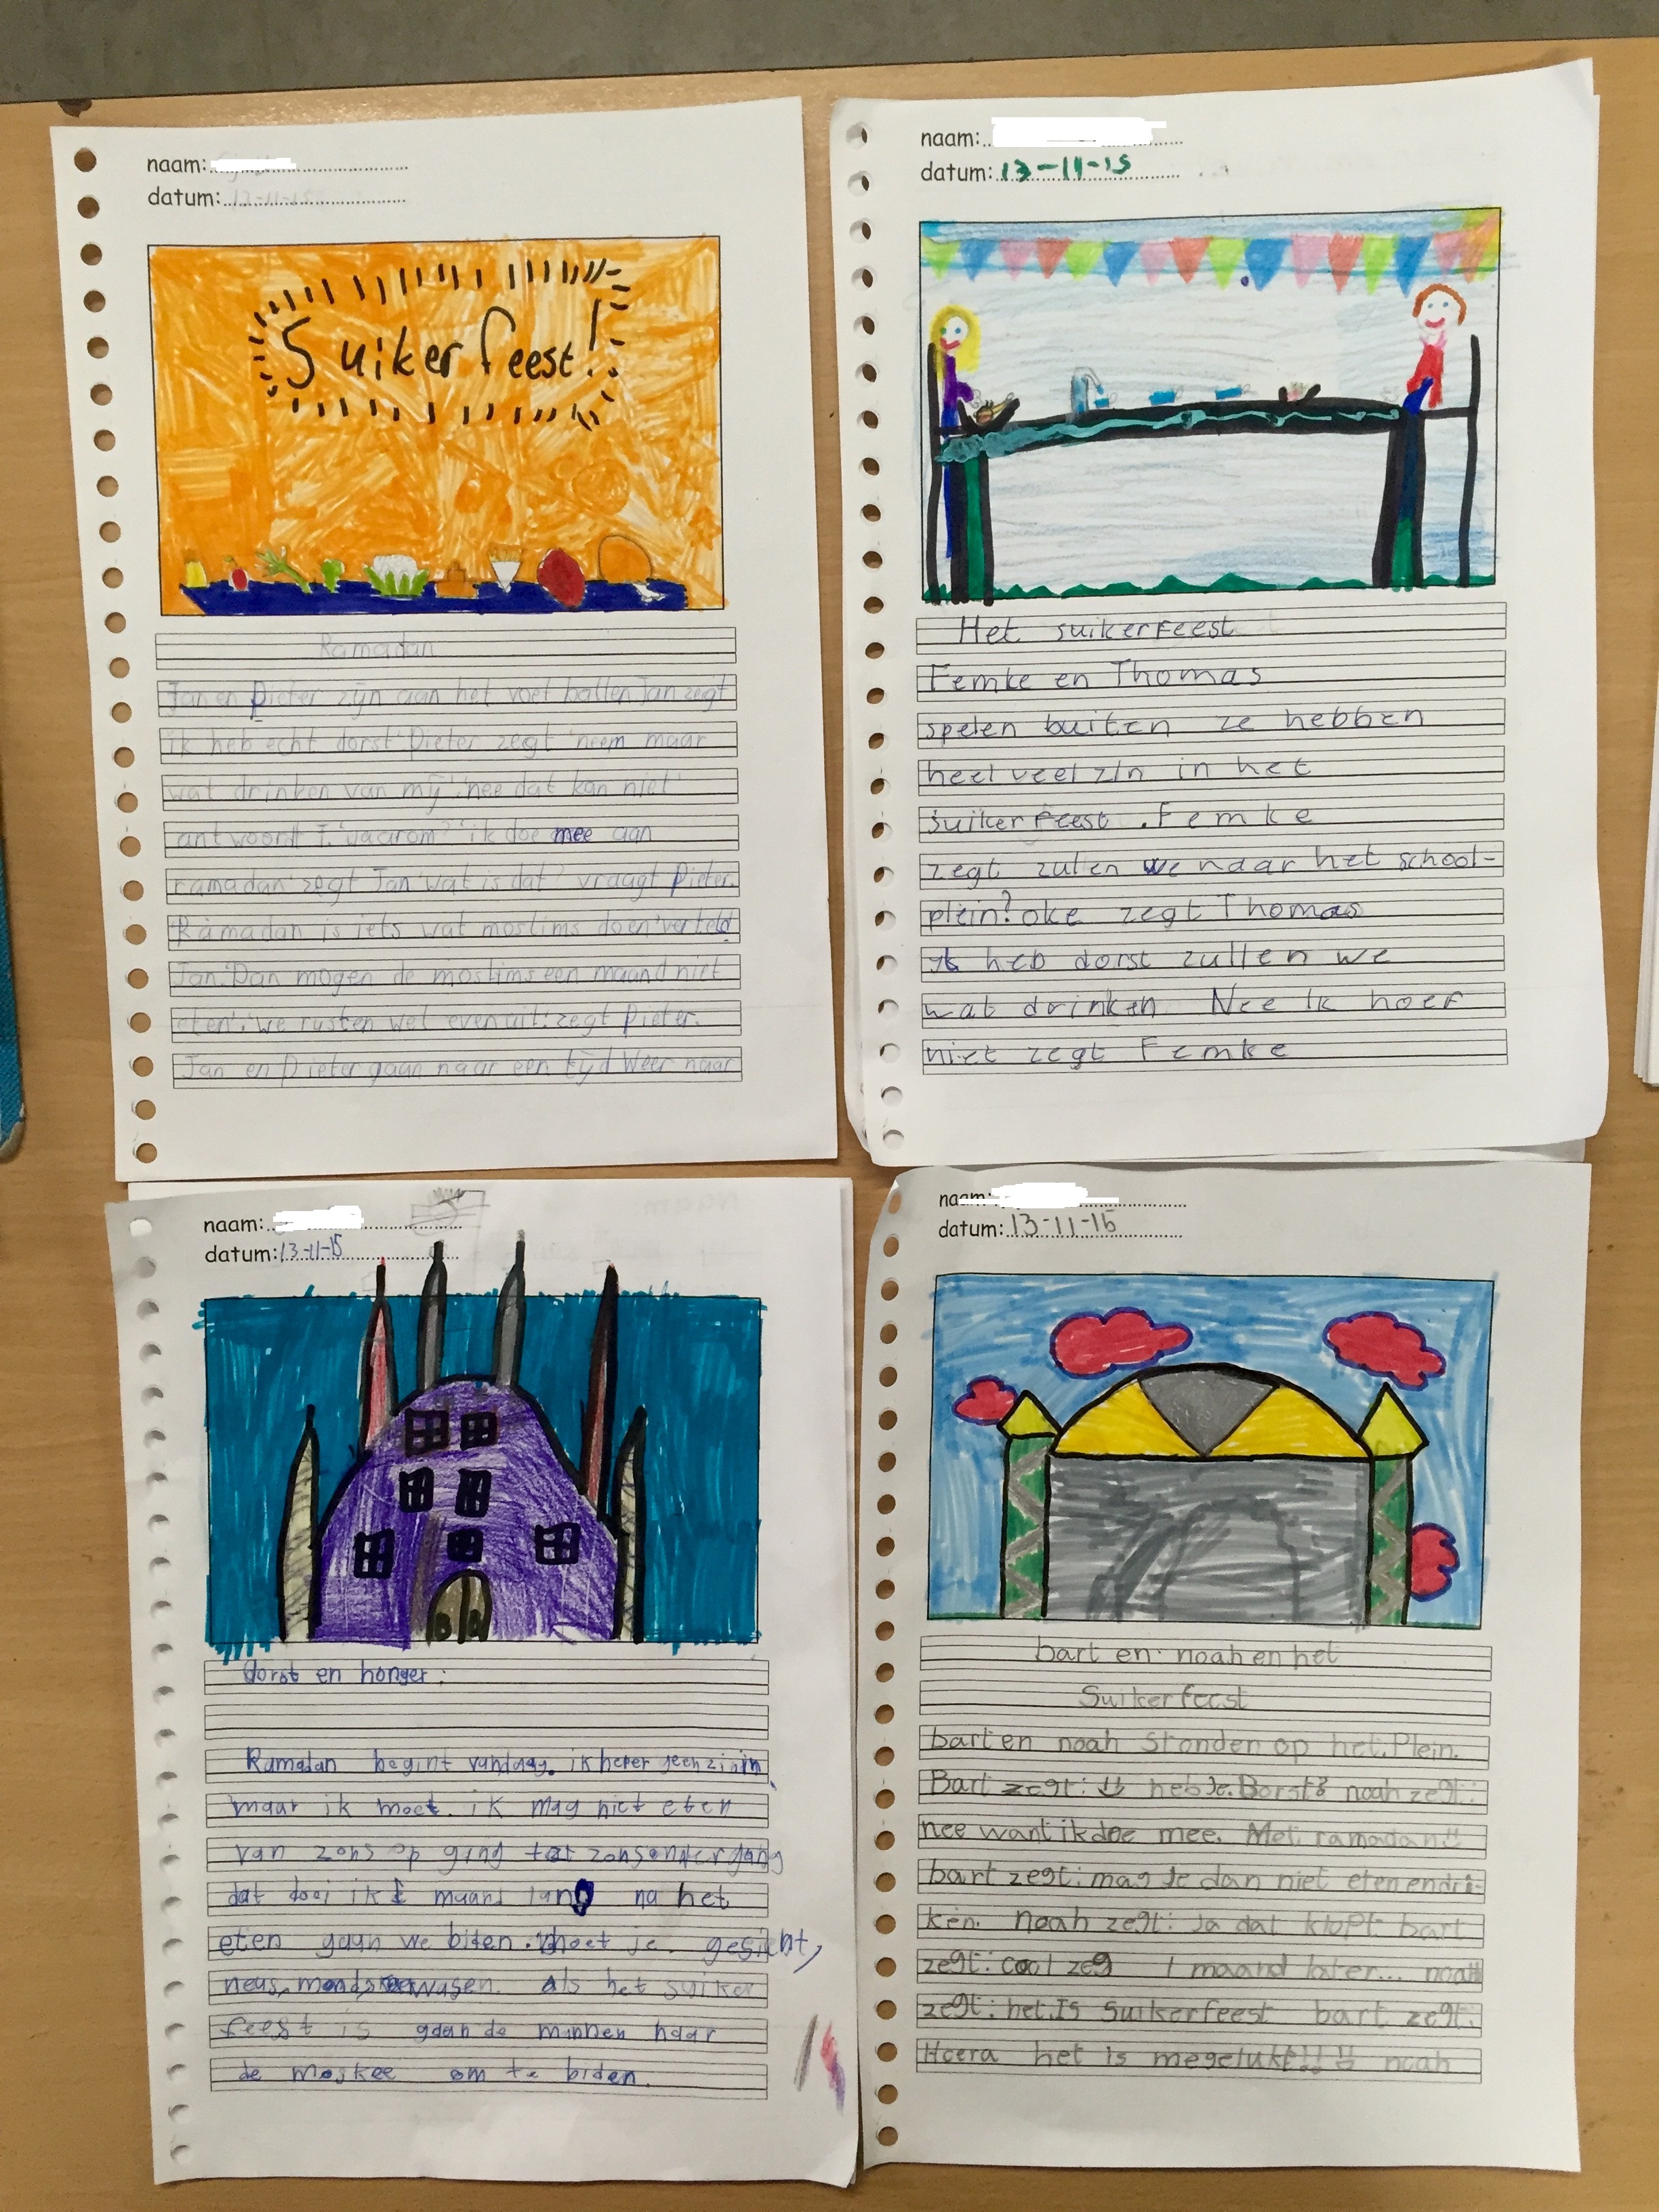 naam:
datum: 13-11-15
Suikerfeest!
Ramadan
Jan en Pieter zijn aan het voet ballen Jan zegt
ik heb echt dorst' Pieter zegt 'neem maar
wat drinken van mij' 'nee dat kan niet'
antwoordt J. 'waarom?' 'ik doe mee aan
ramadan' zegt Jan 'wat is dat?' vraagt Pieter.
'Ramadan is iets wat moslims doen' verteld
Jan. 'Dan mogen de moslims een maand niet
eten'. 'we rusten wel even uit' zegt Pieter.
Jan en Pieter gaan naar een tijd weer naar
naam:
datum: 13-11-15
Het suikerfeest
Femke en Thomas
spelen buiten ze hebben
heel veel zin in het
suikerfeest. Femke
zegt zulen we naar het school-
plein? oke zegt Thomas
ik heb dorst zullen we
wat drinken Nee ik hoef
niet zegt Femke
naam:
datum: 13-11-15
dorst en honger:
Ramadan begint vandaag. ik heper geen zin in
maar ik moet. ik mag niet eten
van zons op ging tot zonsondergang
dat doei ik 1 maand lang na het
eten gaan we biden. moet je gesicht,
neus, mond wasen. Als het suiker
feest is gaan de mannen naar
de moskee om te biden.
naam:
datum: 13-11-15
bart en noah en het
Suikerfeest
bart en noah Stonden op het. Plein.
Bart zegt: heb Je. Dorst? noah zegt:
nee want ik doe mee. Met ramadan
bart zegt: mag Je dan niet eten en dri-
ken. noah zegt: Ja dat klopt bart
zegt: cool zeg 1 maand later... noah
zegt: het. Is Suikerfeest bart zegt:
Hoera het is megelukt!! noah